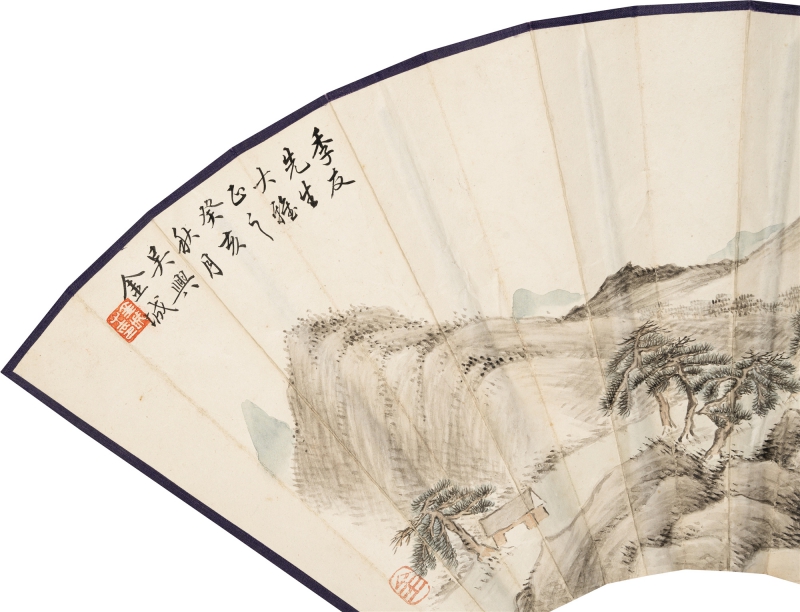 季友
先生
大雅
正之
癸亥
秋月
吴興
金城